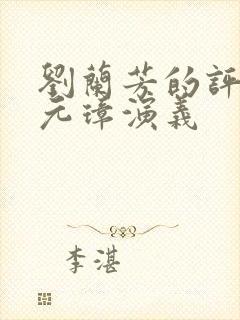 劉蘭芳的評
元璋演義
李湛